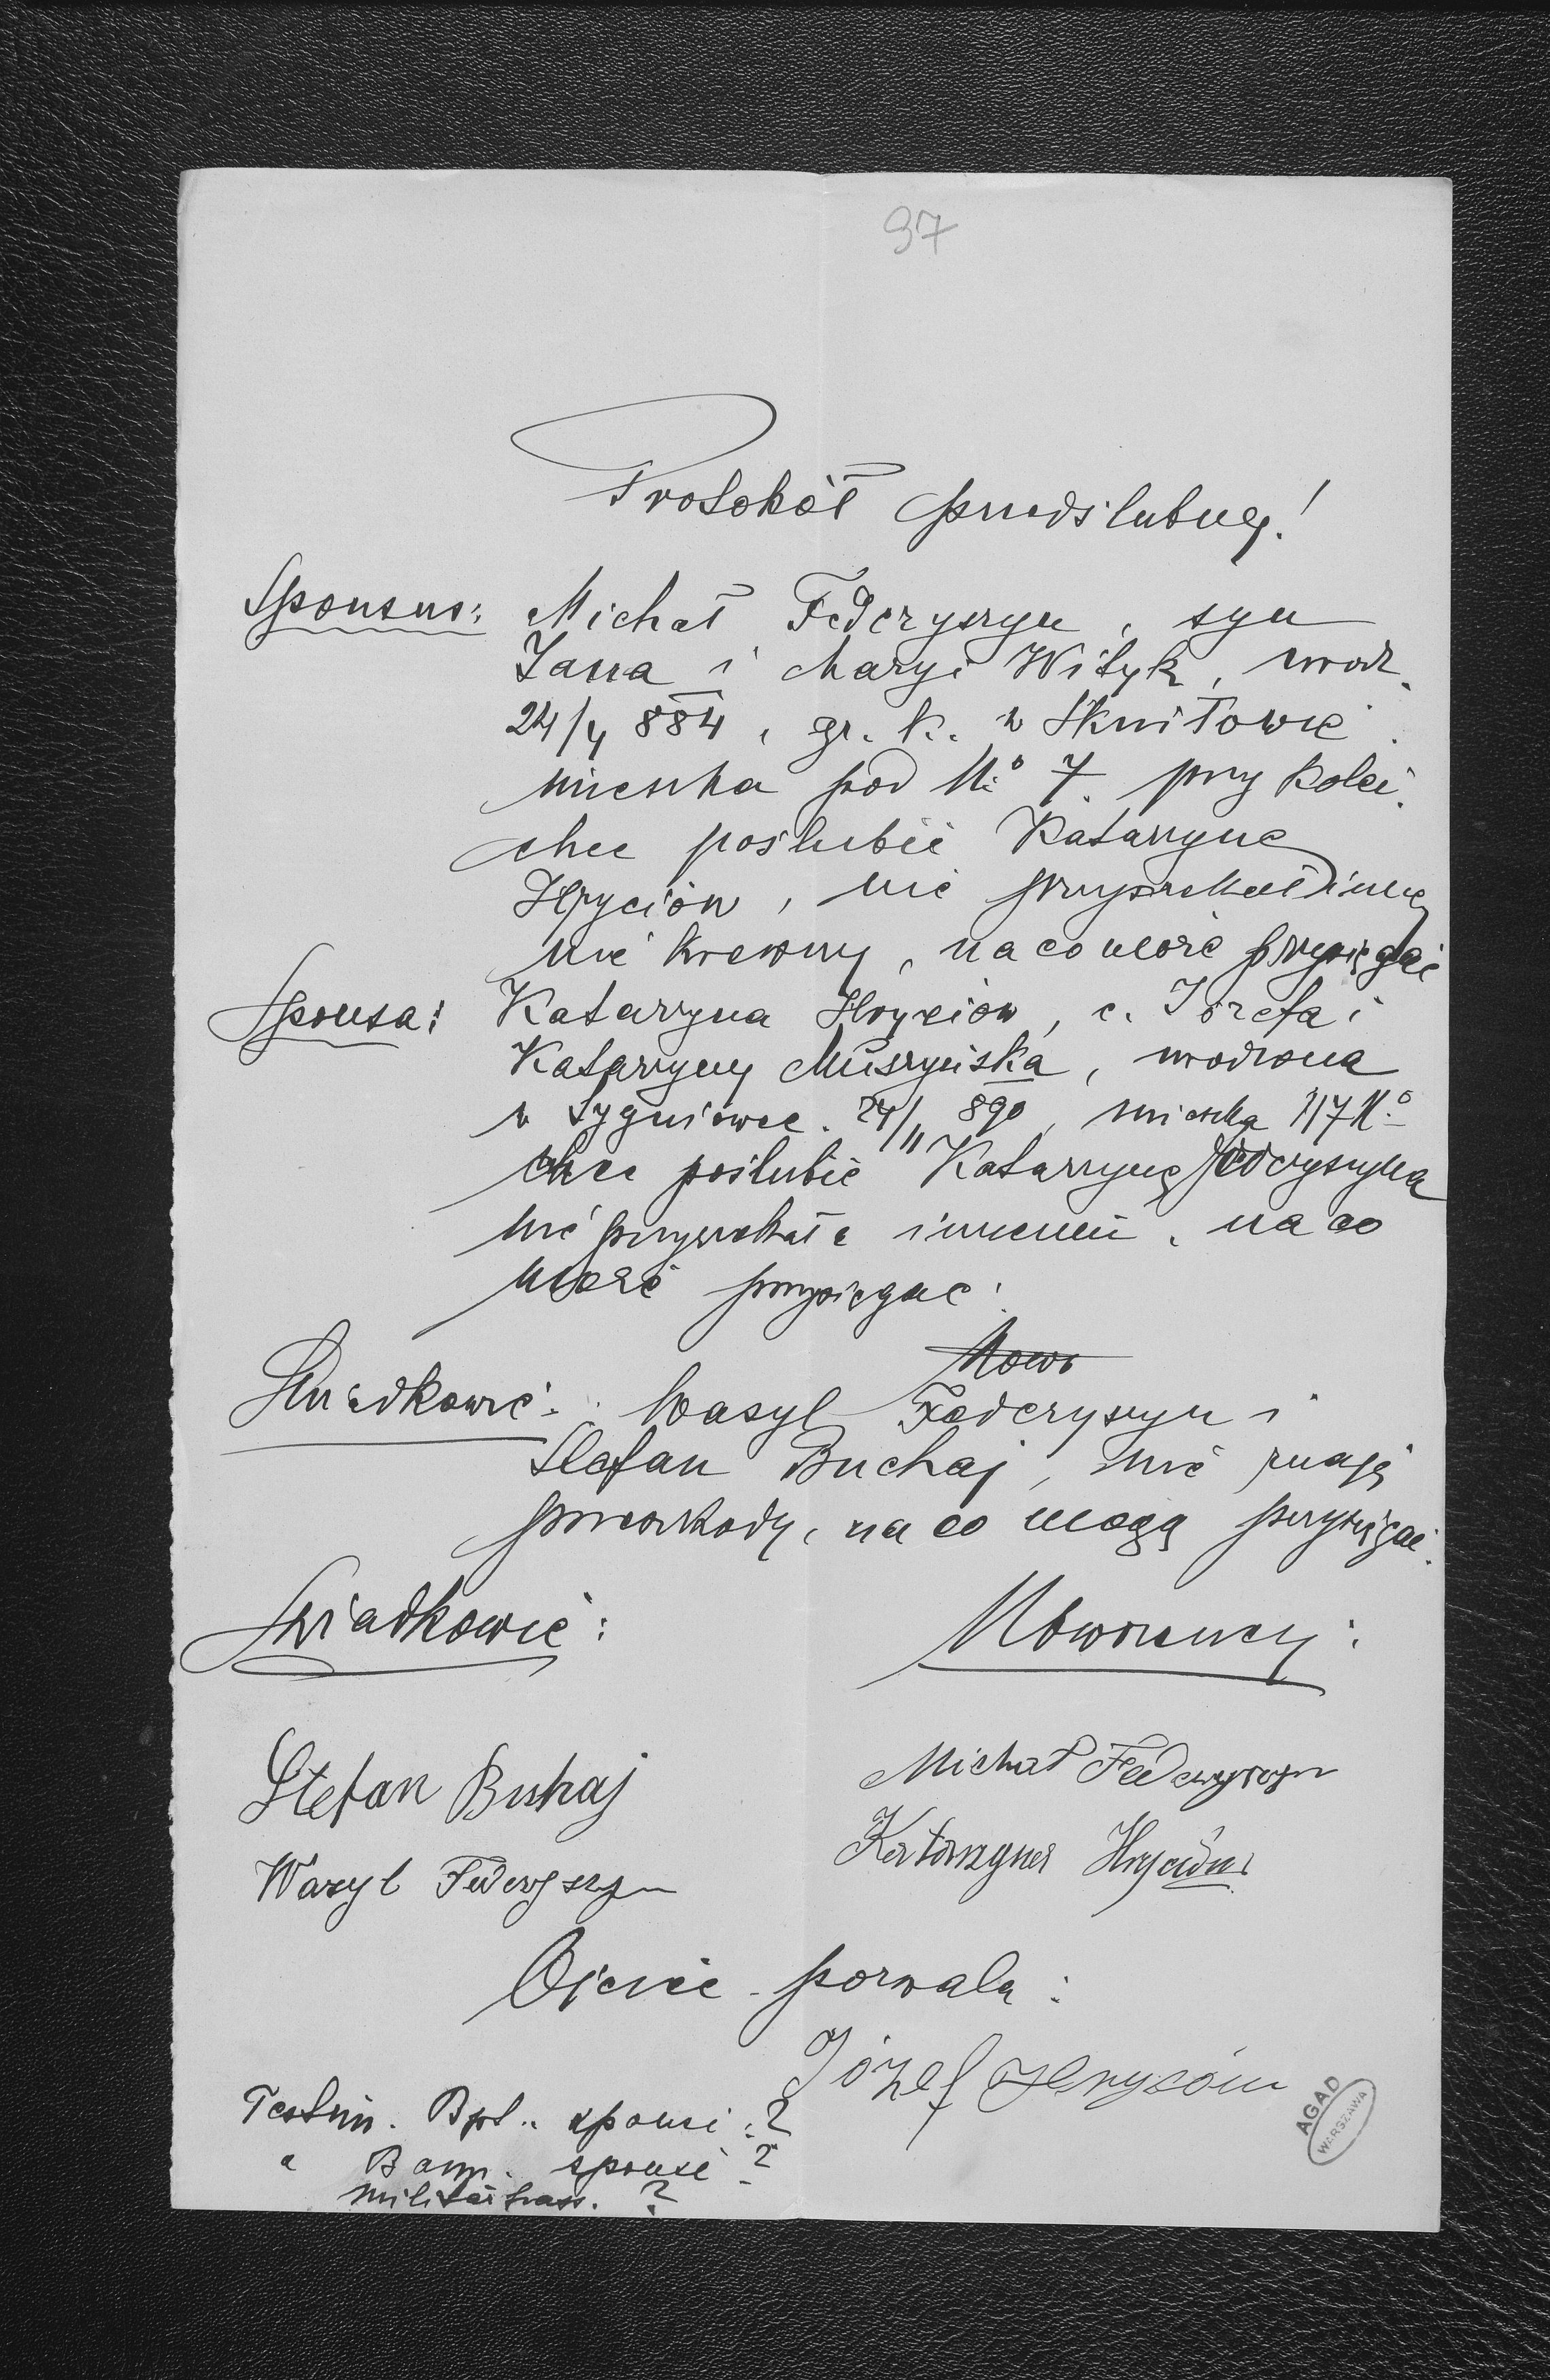 97
Protokół przedślubny!
Sponsus: Michał Federyszyn, syn
Jana i Maryi Wityk, urodz.
24/4 884, gr. k. w Skniłowie
mieszka pod No 7. przy kolei.
chce poślubić Katarzynę
Hryciów, nie przyrzekał innej
nie krewny, na co może przysięgać
Sponsa: Katarzyna Hryciów, c. Józefa i
Katarzyny Muszyńska, urodzona
w Sygniówce. 24/11 890, mieszka 117 No
chce poślubić Katarzynę Federyszyna
nie przyrzekała innemu, na co
może przysięgać.
Nowo
Świadkowie: Wasyl Federyszyn i
Stefan Buchaj, nie znają
przeszkody, na co mogą przysięgać.
Świadkowie: Nowożeńcy:
Stefan Buhaj Michał Federyszyn
Wasyl Federyszyn Katarzyna Hryciów
Ojciec pozwala:
Józef Hryców
Testim. Bpt. sponsi: ?
" Bann. sponsi ?
militär pass. ?
AGAD
WARSZAWA